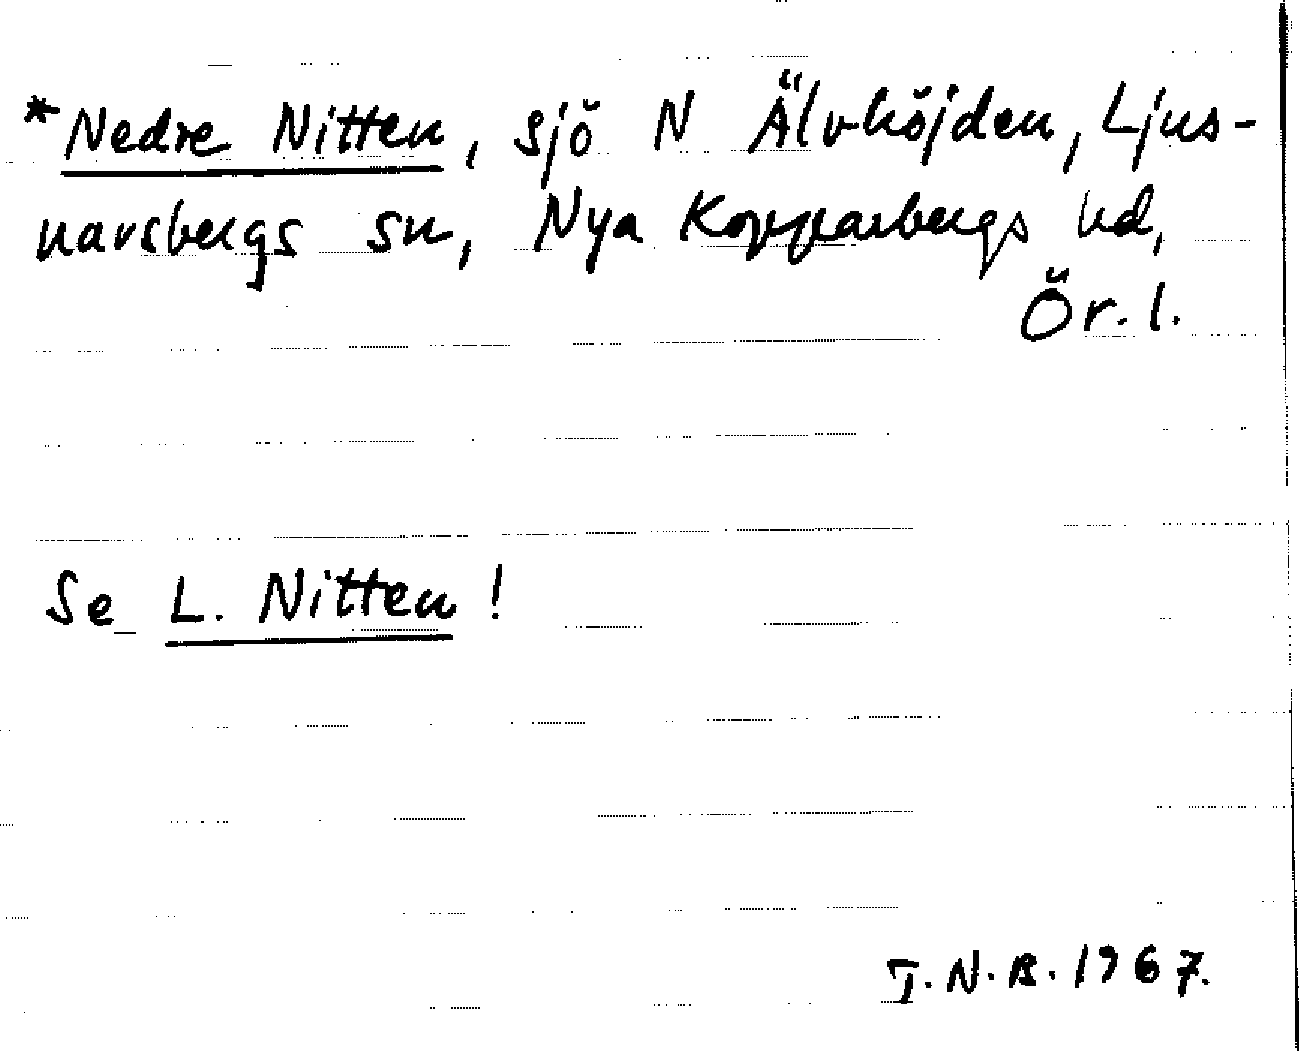 *Nedre Nitten, sjö N Älvhöjden, Ljus-
narsbergs sn, Nya Kopparbergs hd,
Ör. l.
Se L. Nitten!
T. N. B. 1967.